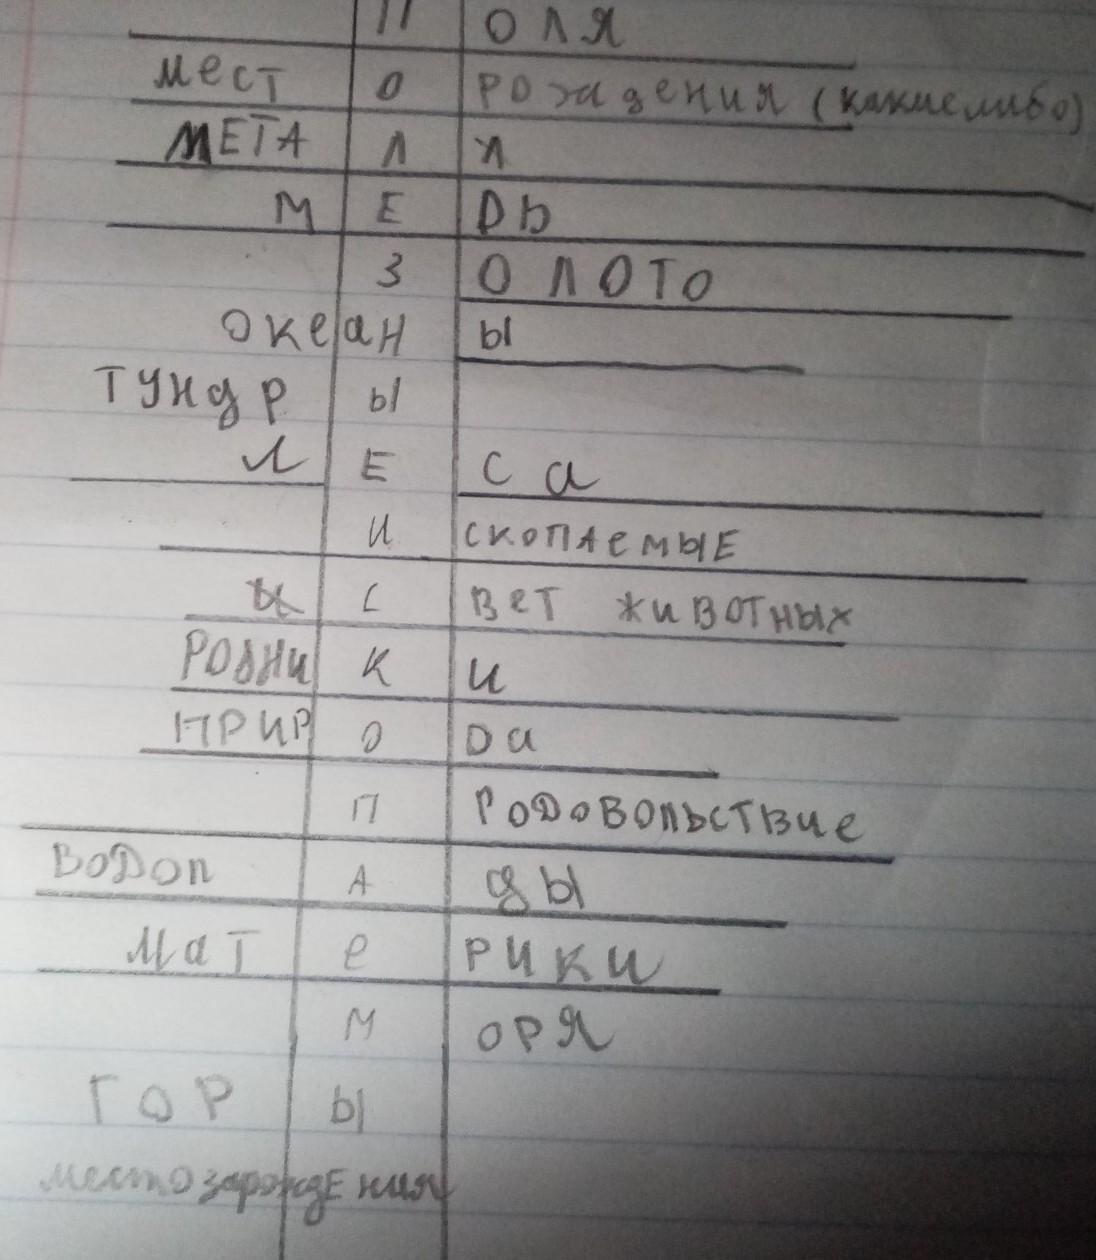 ПОЛЯ
МЕСТОРОЖДЕНИЯ (какиелибо)
МЕТАЛЛ
МЕДЬ
ЗОЛОТО
ОКЕАНЫ
ТУНДРЫ
ЛЕСА
ИСКОПАЕМЫЕ
СВЕТ ЖИВОТНЫХ
РОДНИКИ
ПРИРОДА
ПРОДОВОЛЬСТВИЕ
ВОДОПАДЫ
МАТЕРИКИ
МОРЯ
ГОРЫ
местозарождЕния